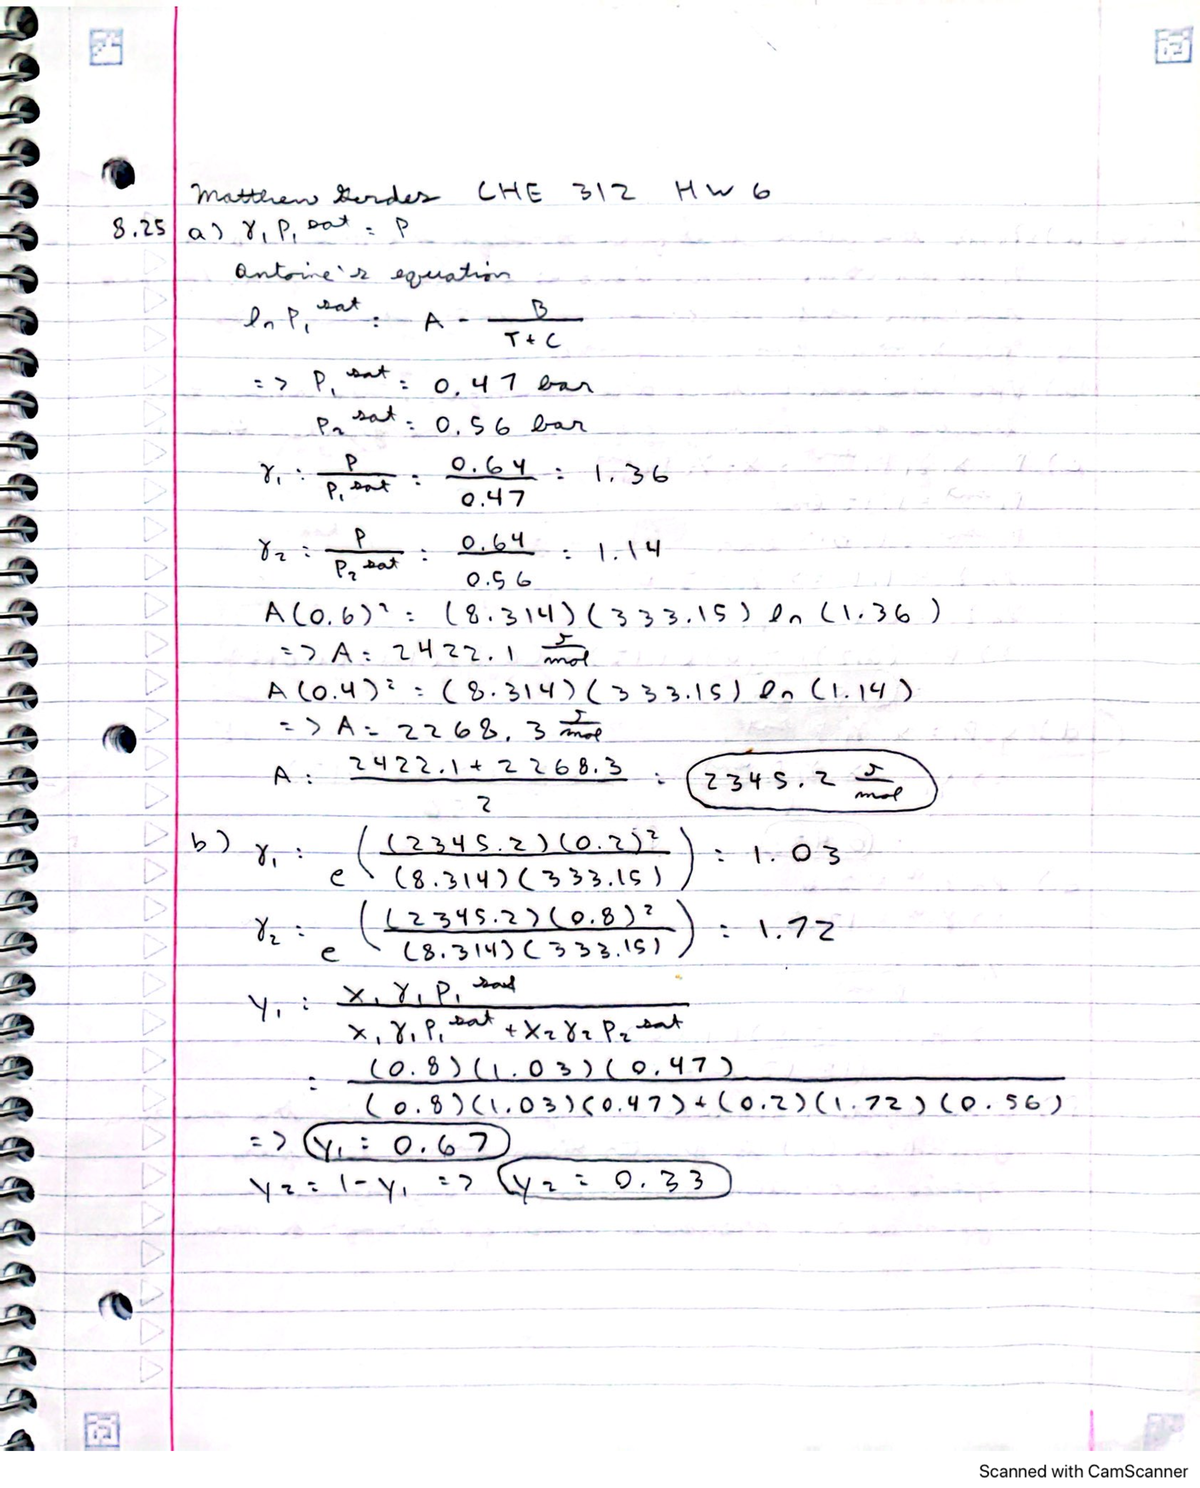 Matthew Gerdes CHE 312 HW 6
8.25 a) γ₁ P₁ sat = P
Antoine's equation
ln P₁ sat = A - B / (T + C)
=> P₁ sat = 0.47 bar
P₂ sat = 0.56 bar
γ₁ = P / P₁ sat = 0.64 / 0.47 = 1.36
γ₂ = P / P₂ sat = 0.64 / 0.56 = 1.14
A(0.6)² = (8.314)(333.15) ln (1.36)
=> A = 2422.1 J/mol
A(0.4)² = (8.314)(333.15) ln (1.14)
=> A = 2268.3 J/mol
A = (2422.1 + 2268.3) / 2 = 2345.2 J/mol
b) γ₁ = e^((2345.2)(0.2)² / (8.314)(333.15)) = 1.03
γ₂ = e^((2345.2)(0.8)² / (8.314)(333.15)) = 1.72
y₁ = x₁ γ₁ P₁ sat / (x₁ γ₁ P₁ sat + x₂ γ₂ P₂ sat)
= (0.8)(1.03)(0.47) / ((0.8)(1.03)(0.47) + (0.2)(1.72)(0.56))
=> y₁ = 0.67
y₂ = 1 - y₁ => y₂ = 0.33
Scanned with CamScanner